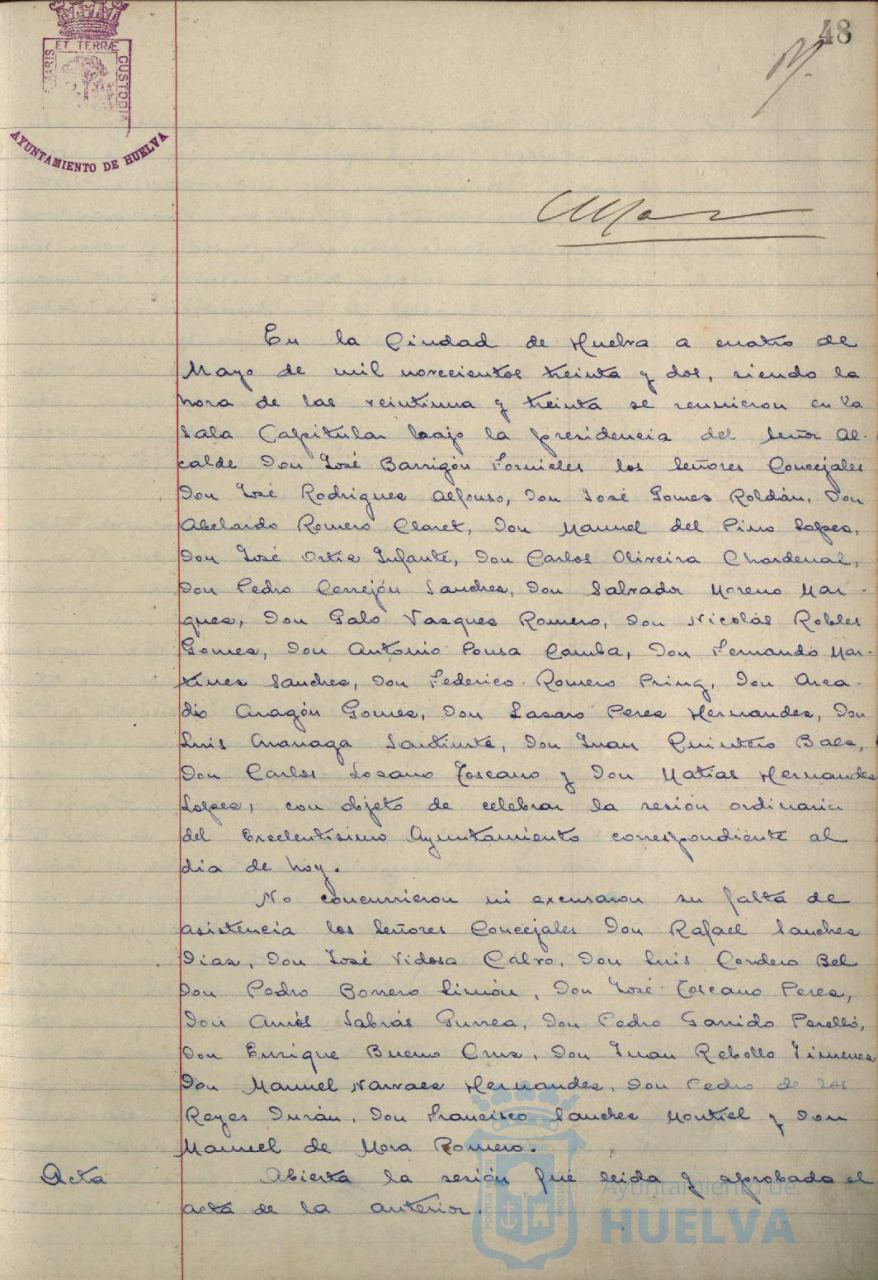 48
MARIS ET TERRÆ CUSTODIA
AYUNTAMIENTO DE HUELVA
En la Ciudad de Huelva a cuatro de
Mayo de mil novecientos treinta y dos, siendo la
hora de las veintiuna y treinta se reunieron en la
Sala Capitular bajo la presidencia del Señor Al-
calde Don José Barrigón Fornieles los Señores Concejales
Don José Rodrigues Alfonso, Don José Gomes Roldán, Don
Abelardo Romero Claret, Don Manuel del Pino Lopes,
Don José Ortis Infante, Don Carlos Oliveira Chardenal,
Don Pedro Cerrejón Sanches, Don Salvador Moreno Mar-
ques, Don Galo Vasques Romero, Don Nicolás Robles
Gomes, Don Antonio Pousa Camba, Don Fernando Mar-
tines Sanches, Don Federico Romero Pring, Don Arca-
dio Aragón Gomes, Don Lasaro Peres Hernandes, Don
Luis Aranaga Santiuste, Don Juan Quintero Baes,
Don Carlos Losano Toscano y Don Matias Hernandes
Lopes, con objeto de celebrar la sesión ordinaria
del Excelentísimo Ayuntamiento correspondiente al
día de hoy.
No concurrieron ni excusaron su falta de
asistencia los Señores Concejales Don Rafael Sanches
Dias, Don José Vidosa Calvo, Don Luis Cordero Bel
Don Pedro Borrero Limón, Don José Toscano Peres,
Don Amós Sabrás Gurrea, Don Pedro Garrido Perelló,
Don Enrique Bueno Crus, Don Juan Rebollo Jimenes
Don Manuel Narvaes Hernandes, Don Pedro de los
Reyes Durán, Don Francisco Sanches Montiel y Don
Manuel de Mora Romero.
Acta Abierta la sesión fué leida y aprobada el
acta de la anterior.
Ayuntamiento de
HUELVA